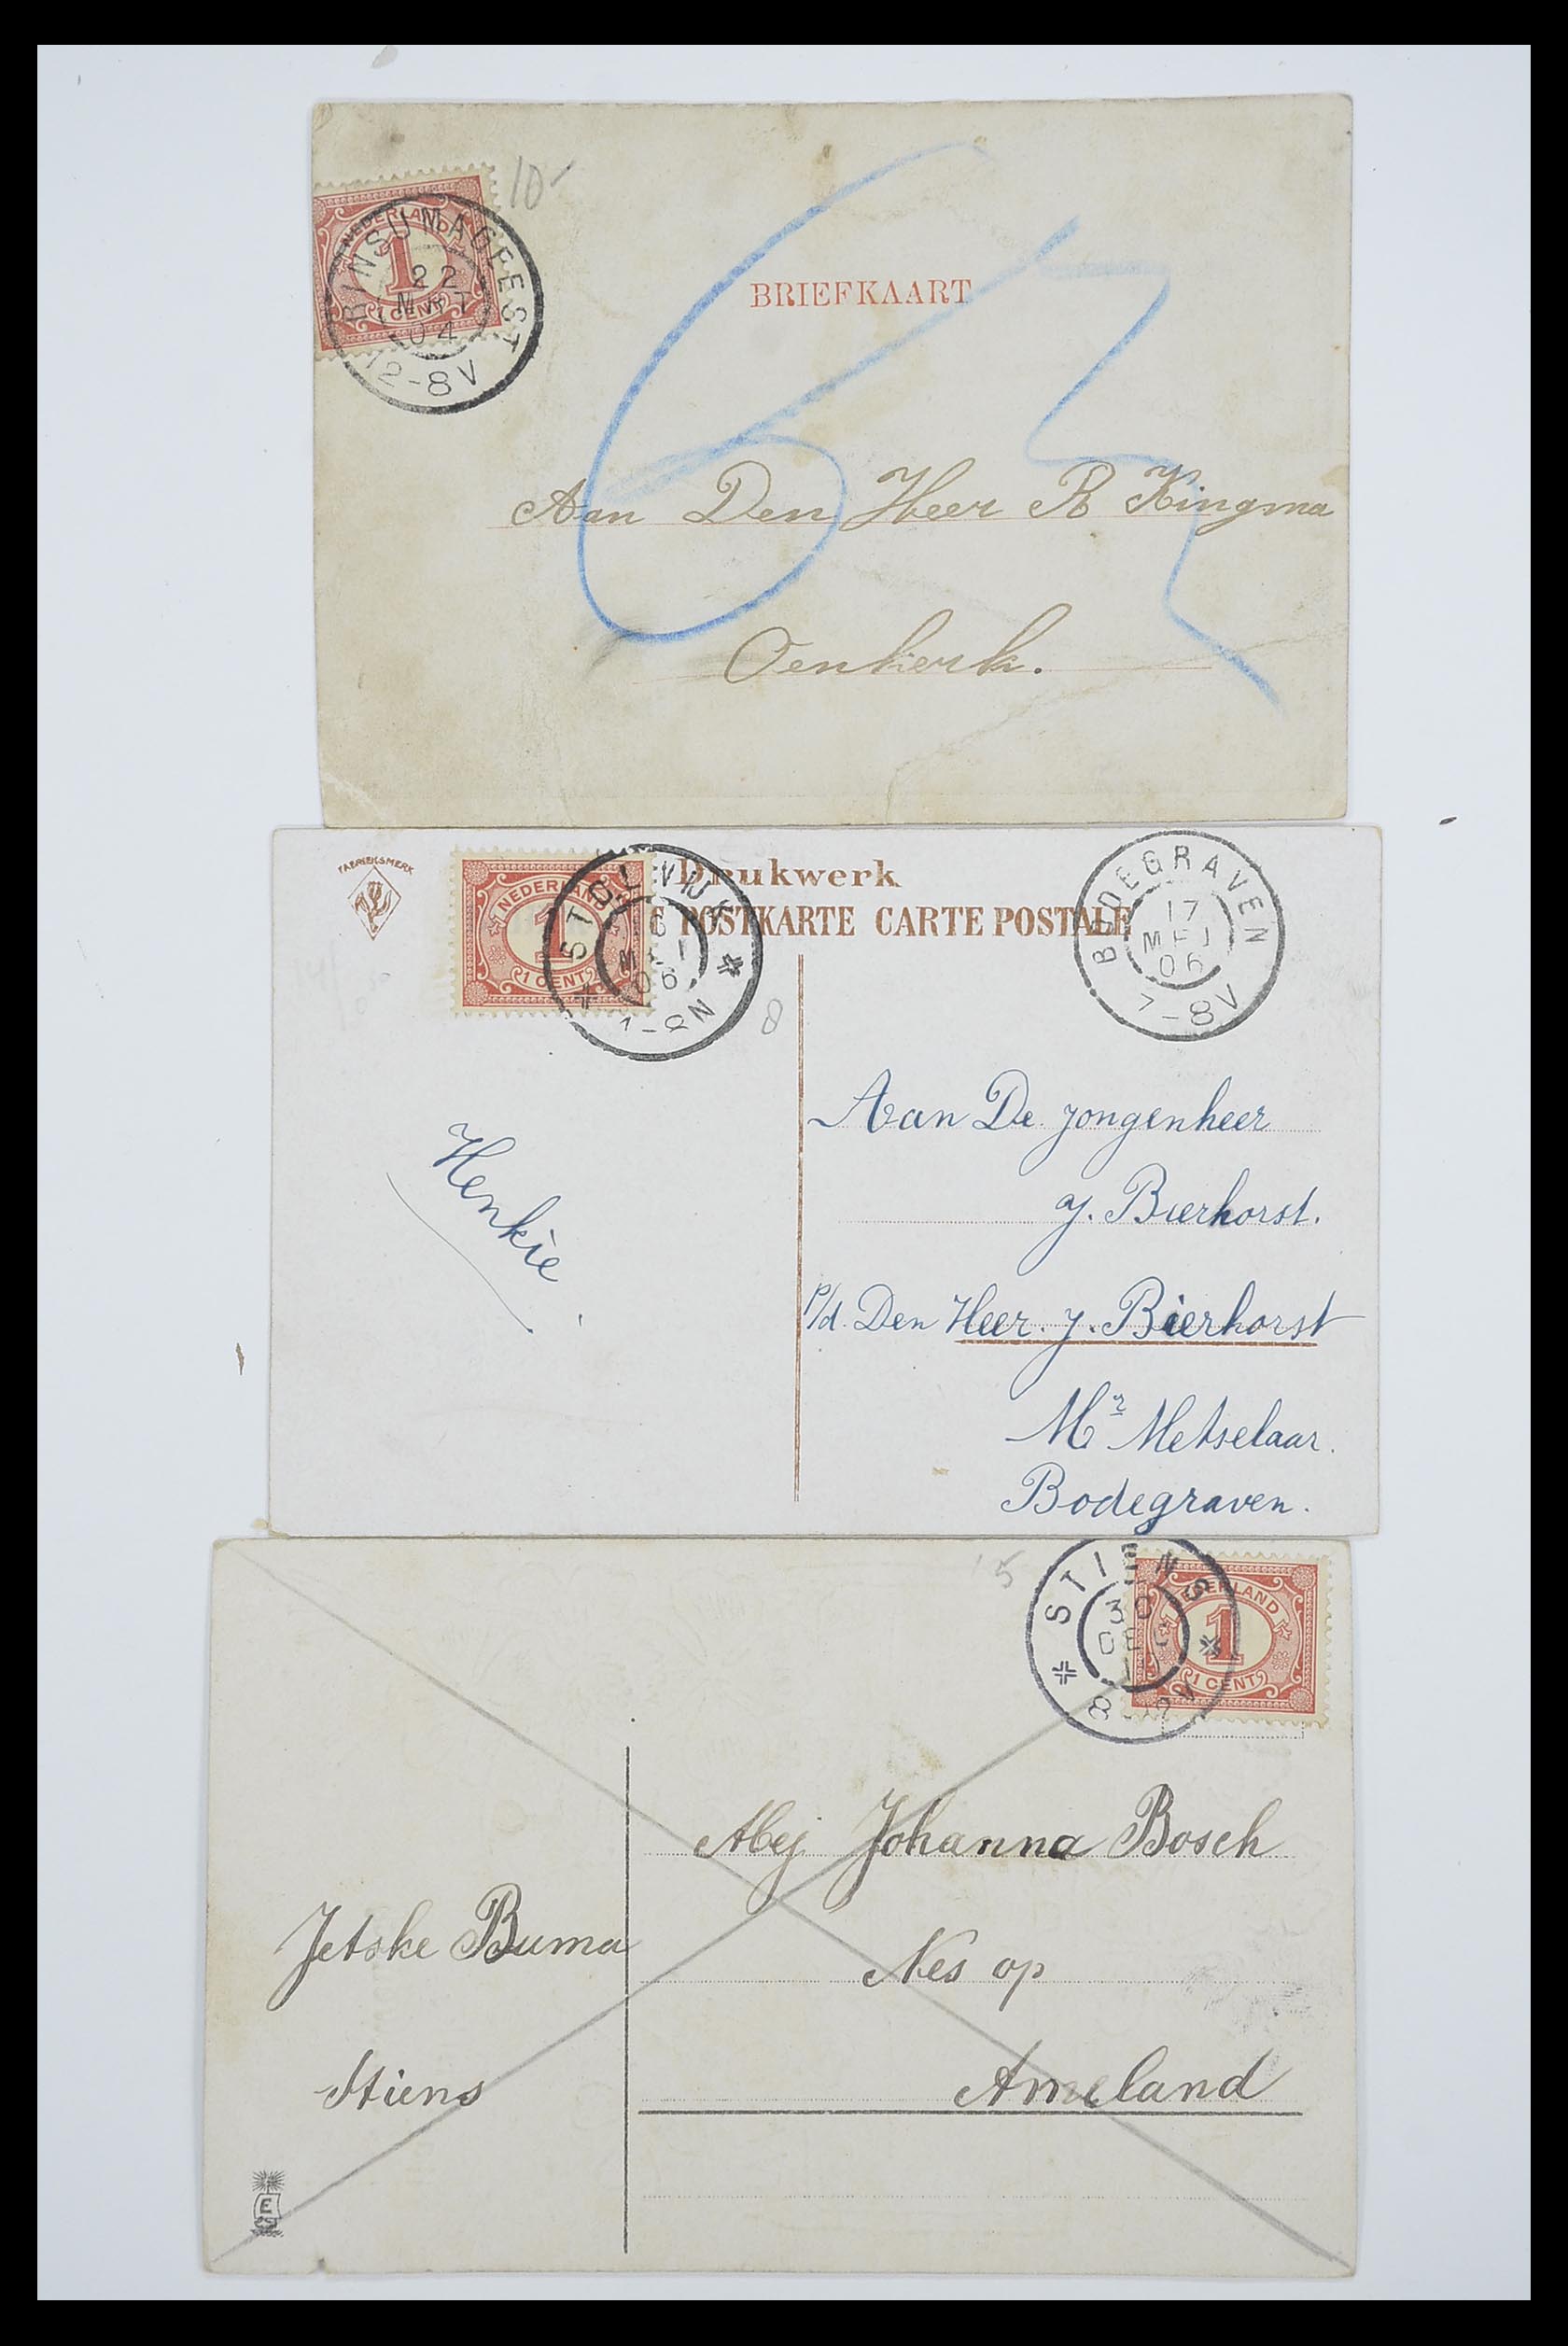 10-
NEDERLAND
1
1 CENT
RINSUMAGEEST
22
MRT
04
12-8V
BRIEFKAART
Aan Den Heer R Kingma
Oenkerk.
FABRIEKSMERK
NEDERLAND
1
1 CENT
STOLWIJK
16
MEI
06
7-8N
Drukwerk
POSTKARTE CARTE POSTALE
BODEGRAVEN
17
MEI
06
7-8V
8
Henkie
Aan De jongenheer
J. Bierhorst.
p/d. Den Heer. J. Bierhorst
Mr Metselaar.
Bodegraven.
5
STIENS
30
DEC
NEDERLAND
1
1 CENT
Mej Johanna Bosch
Jetske Buma
Nes op
Stiens
Ameland
E